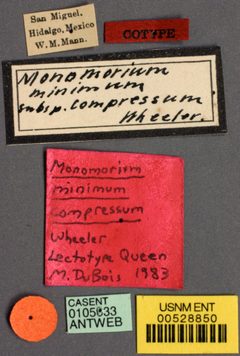 San Miguel,
Hidalgo, Mexico
W. M. Mann.
COTYPE
Monomorium
minimum
subsp. compressum
Wheeler.
Monomorium
minimum
compressum
Wheeler
Lectotype Queen
M. DuBois 1983
CASENT
0105633
ANTWEB
USNM ENT
00528850